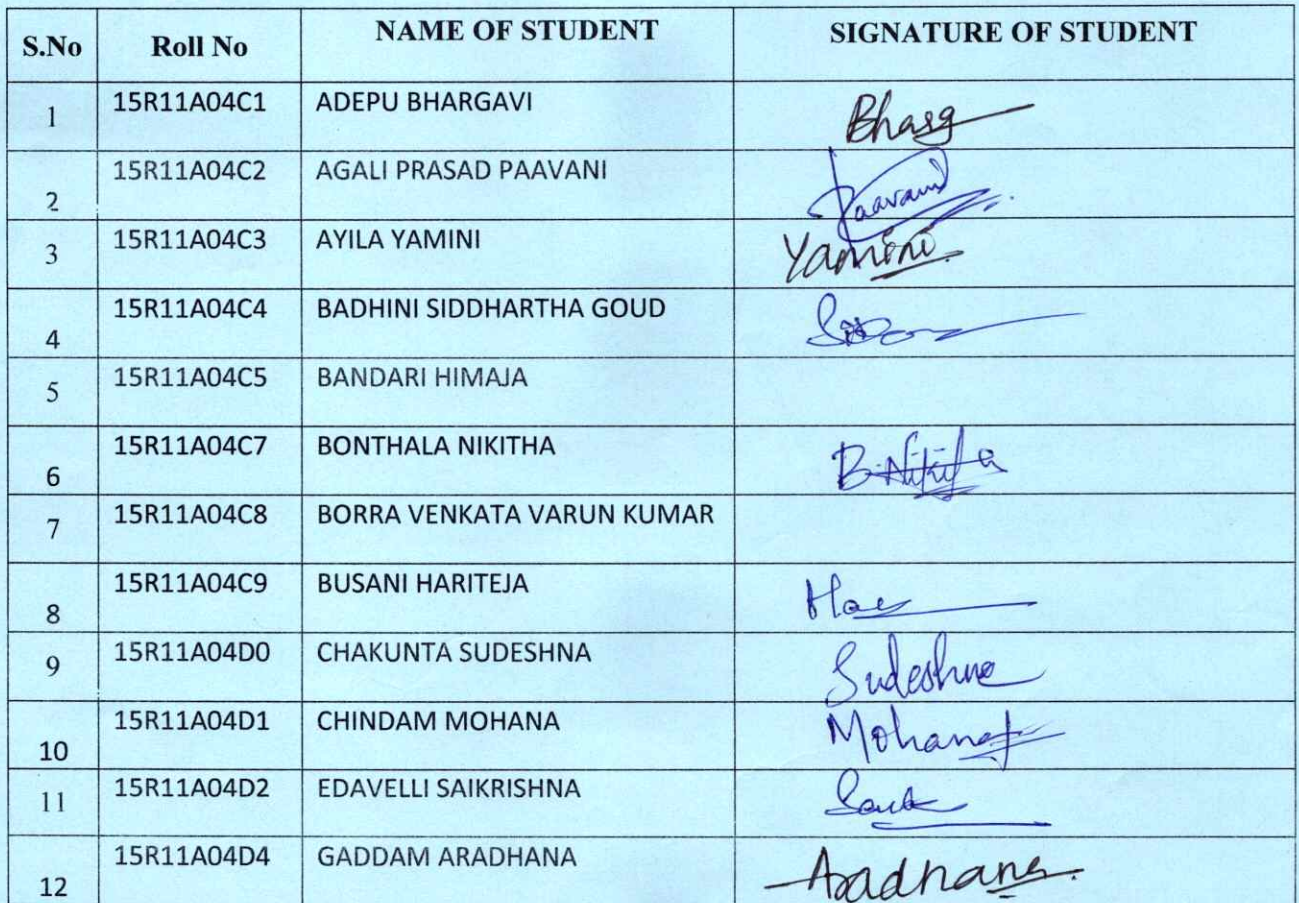 S.No Roll No NAME OF STUDENT SIGNATURE OF STUDENT
1 15R11A04C1 ADEPU BHARGAVI Bharg
2 15R11A04C2 AGALI PRASAD PAAVANI Paavani
3 15R11A04C3 AYILA YAMINI Yamini
4 15R11A04C4 BADHINI SIDDHARTHA GOUD
5 15R11A04C5 BANDARI HIMAJA
6 15R11A04C7 BONTHALA NIKITHA B.Nikitha
7 15R11A04C8 BORRA VENKATA VARUN KUMAR
8 15R11A04C9 BUSANI HARITEJA
9 15R11A04D0 CHAKUNTA SUDESHNA Sudeshna
10 15R11A04D1 CHINDAM MOHANA Mohana
11 15R11A04D2 EDAVELLI SAIKRISHNA
12 15R11A04D4 GADDAM ARADHANA Aradhana